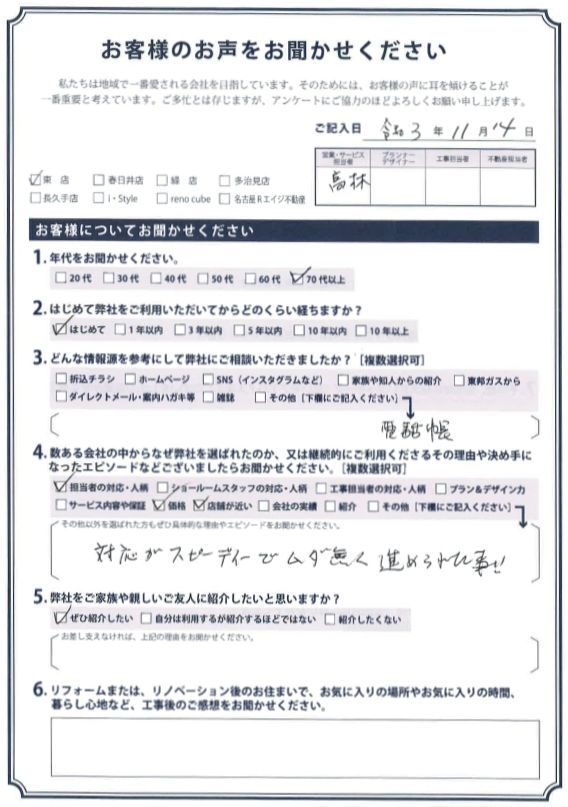 お客様のお声をお聞かせください
私たちは地域で一番愛される会社を目指しています。そのためには、お客様の声に耳を傾けることが
一番重要と考えています。ご多忙とは存じますが、アンケートにご協力のほどよろしくお願い申し上げます。
ご記入日 令和3年11月14日
営業・サービス担当者 プランナーデザイナー 工事担当者 不動産担当者
高林
☑東店 □春日井店 □緑店 □多治見店
□長久手店 □i・Style □reno cube □名古屋Rエイジ不動産
お客様についてお聞かせください
1. 年代をお聞かせください。
□20代 □30代 □40代 □50代 □60代 ☑70代以上
2. はじめて弊社をご利用いただいてからどのくらい経ちますか？
☑はじめて □1年以内 □3年以内 □5年以内 □10年以内 □10年以上
3. どんな情報源を参考にして弊社にご相談いただきましたか？［複数選択可］
□折込チラシ □ホームページ □SNS（インスタグラムなど） □家族や知人からの紹介 □東邦ガスから
□ダイレクトメール・案内ハガキ等 □雑誌 □その他［下欄にご記入ください］
電話帳
4. 数ある会社の中からなぜ弊社を選ばれたのか、又は継続的にご利用くださるその理由や決め手に
なったエピソードなどございましたらお聞かせください。［複数選択可］
☑担当者の対応・人柄 □ショールームスタッフの対応・人柄 □工事担当者の対応・人柄 □プラン＆デザイン力
□サービス内容や保証 ☑価格 ☑店舗が近い □会社の実績 □紹介 □その他［下欄にご記入ください］
その他以外を選ばれた方もぜひ具体的な理由やエピソードをお聞かせください。
対応がスピーディーでムダ無く進められた事!!
5. 弊社をご家族や親しいご友人に紹介したいと思いますか？
☑ぜひ紹介したい □自分は利用するが紹介するほどではない □紹介したくない
お差し支えなければ、上記の理由をお聞かせください。
6. リフォームまたは、リノベーション後のお住まいで、お気に入りの場所やお気に入りの時間、
暮らし心地など、工事後のご感想をお聞かせください。